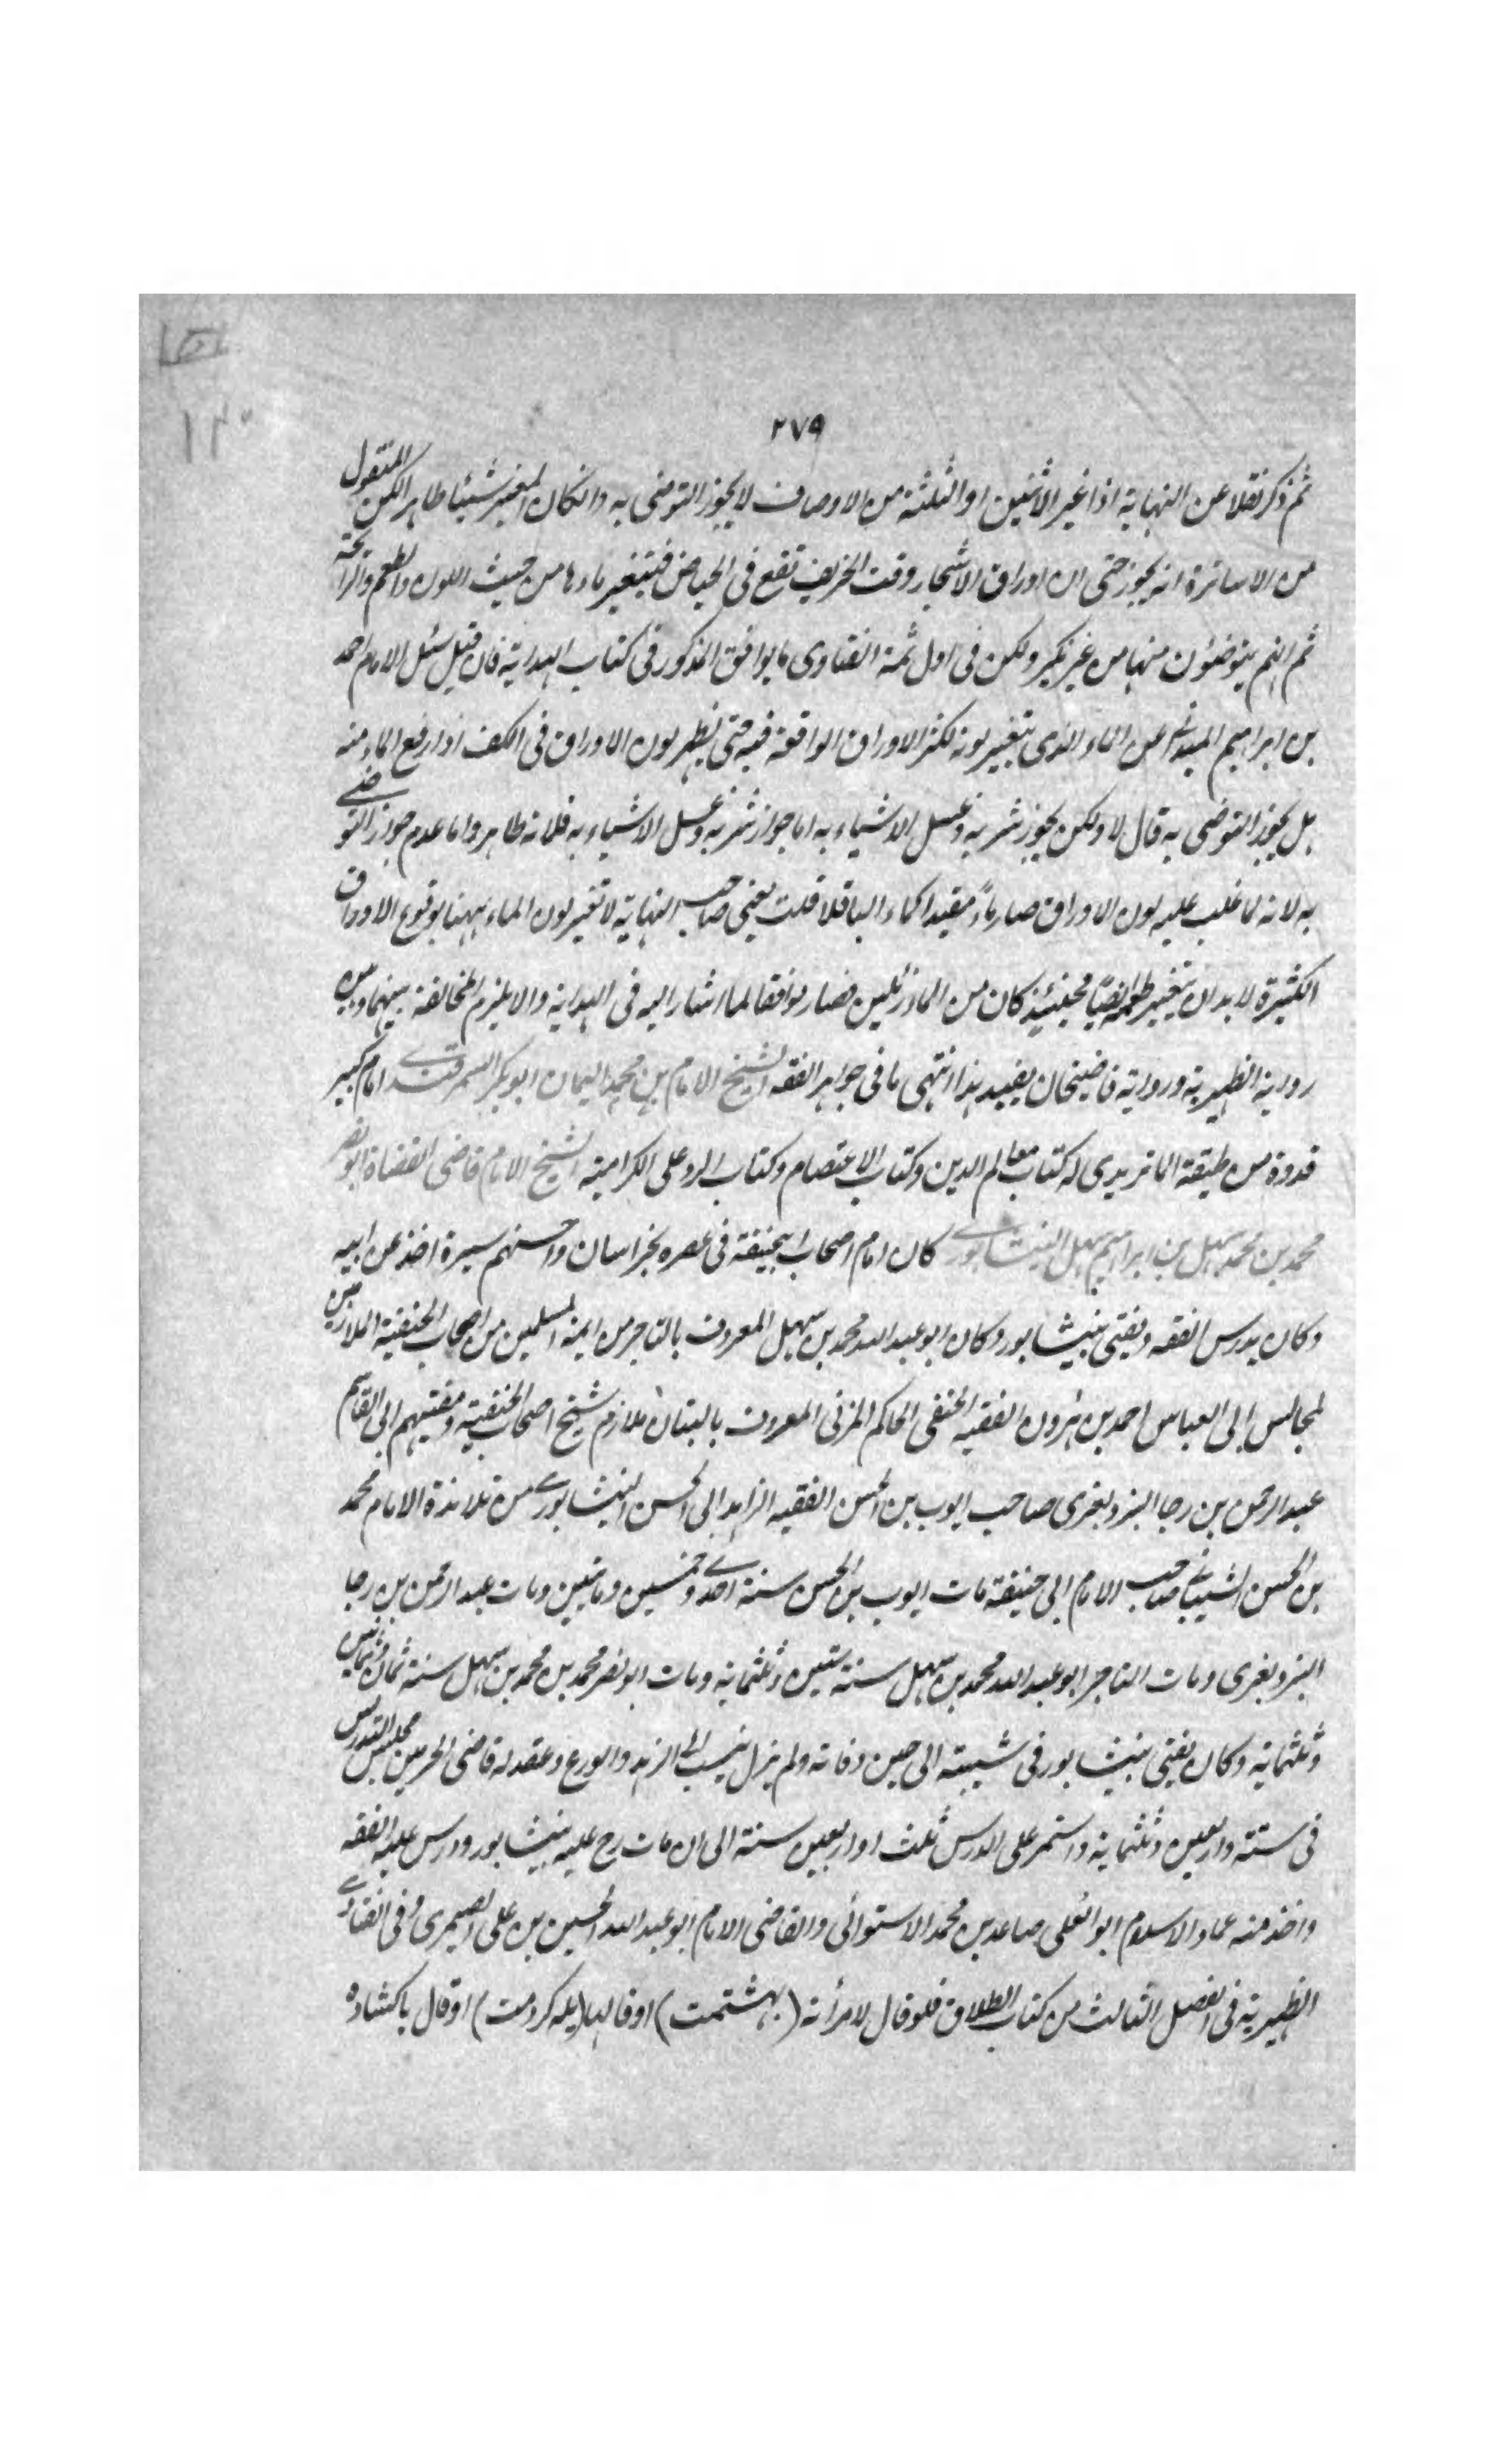 ٢٧٩
ثم ذكر نقلا عن النهاية اذا غير الاثنين او الثلثة من الاوصاف لا يجوز التوضى به وانكان المغير شيئا طاهرا لكن المنقول
من الاساتذة انه يجوز حتى ان اوراق الاشجار وقت الخريف تقع فى الحياض فيتغير ماءها من حيث اللون والطعم والرائحة
ثم انهم يتوضئون منها من غير نكير ولكن فى اول تتمة الفتاوى ما يوافق المذكور فى كتاب الهداية فان قيل سئل الامام احمد
بن ابراهيم الميدانى عن الماء الذى يتغير لونه لكثرة الاوراق الواقعة فيه حتى يظهر لون الاوراق فى الكف اذا رفع الماء منه
هل يجوز التوضى به قال لا ولكن يجوز شربه وغسل الاشياء به اما جواز شربه وغسل الاشياء به فلانه طاهر واما عدم جواز التوضى
به لانه لما غلب عليه لون الاوراق صار ماءً مقيدا كماء الباقلا قلت يعنى صاحب النهاية لا تغير لون الماء ههنا بوقوع الاوراق
الكثيرة لا بد ان يتغير طعمه ايضًا فحينئذٍ كان من الماء زئلين فصار موافقا لما اشار اليه فى الهداية والا يلزم المخالفة بينهما وبين
رواية الظهيرية ورواية قاضيخان يفيد هذا انتهى ما فى جواهر الفقه الشيخ الامام بن محمد اليمان ابو بكر السمرقندى امام كبير
قدوة من طبقة الماتريدى له كتاب معالم الدين وكتاب الاعتصام وكتاب الرد على الكرامية الشيخ الامام قاضى القضاة ابو نصر
محمد بن محمد سهل بن ابراهيم سهل النيشابورى كان امام اصحاب ابيحنيفة فى عصره بخراسان واحسنهم سيرة اخذ عن ابيه
وكان يدرس الفقه ويفتى بنيشابور وكان ابو عبد الله محمد بن سهل المعروف بالتاجر من ائمة المسلمين من اصحاب الحنفية الملازمين
لمجالس ابى العباس احمد بن هرون الفقيه الحنفى الحاكم المزنى المعروف بالبتان ملازم شيخ اصحاب الحنفية ومفتيهم ابى القاسم
عبد الرحمن بن رجا البزديغرى صاحب ايوب بن الحسن الفقيه الزاهد ابى الحسن النيشابورى من تلامذة الامام محمد
بن الحسن الشيبانى صاحب الامام ابى حنيفة مات ايوب بن الحسن سنة احدى وخمسين ومايتين ومات عبد الرحمن بن رجا
البزديغرى ومات التاجر ابو عبد الله محمد بن سهل سنة ستين وثلثماية ومات ابو نصر محمد بن محمد بن سهل سنة ثمان وثمانين
وثلثماية وكان يفتى بنيشابور فى شبيبته الى حين وفاته ولم يزل ينسب الى الزهد والورع وعقد له قاضى الحرمين مجلس التدريس
فى ستة واربعين وثلثماية واستمر على الدرس ثلث او اربعين سنة الى ان مات رح عليه بنيشابور ودرس عليه الفقه
واخذ منه عماد الاسلام ابو العلى صاعد بن محمد الاستوائى والقاضى الامام ابو عبد الله الحسين بن على الصيمرى وفى الفتاوى
الظهيرية فى الفصل الثالث من كتاب الطلاق فلو قال لامرأته (بهشتمت) او قال لها (يله كردمت) او قال پاكشاده